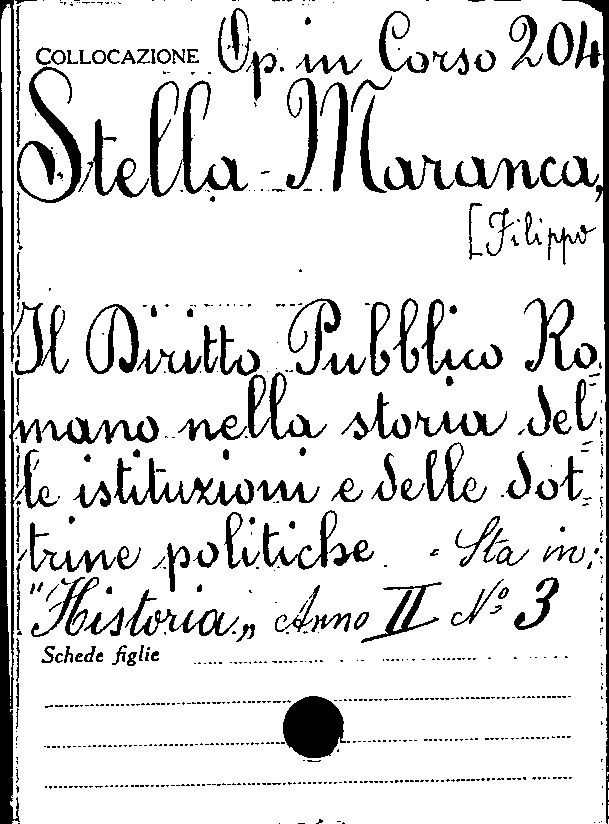 COLLOCAZIONE Op. in Corso 204
Stella-Maranca,
[Filippo
Il Diritto Pubblico Ro=
mano nella storia del=
le istituzioni e delle dot=
trine politiche. - Sta in:
"Historia„ Anno II No 3
Schede figlie